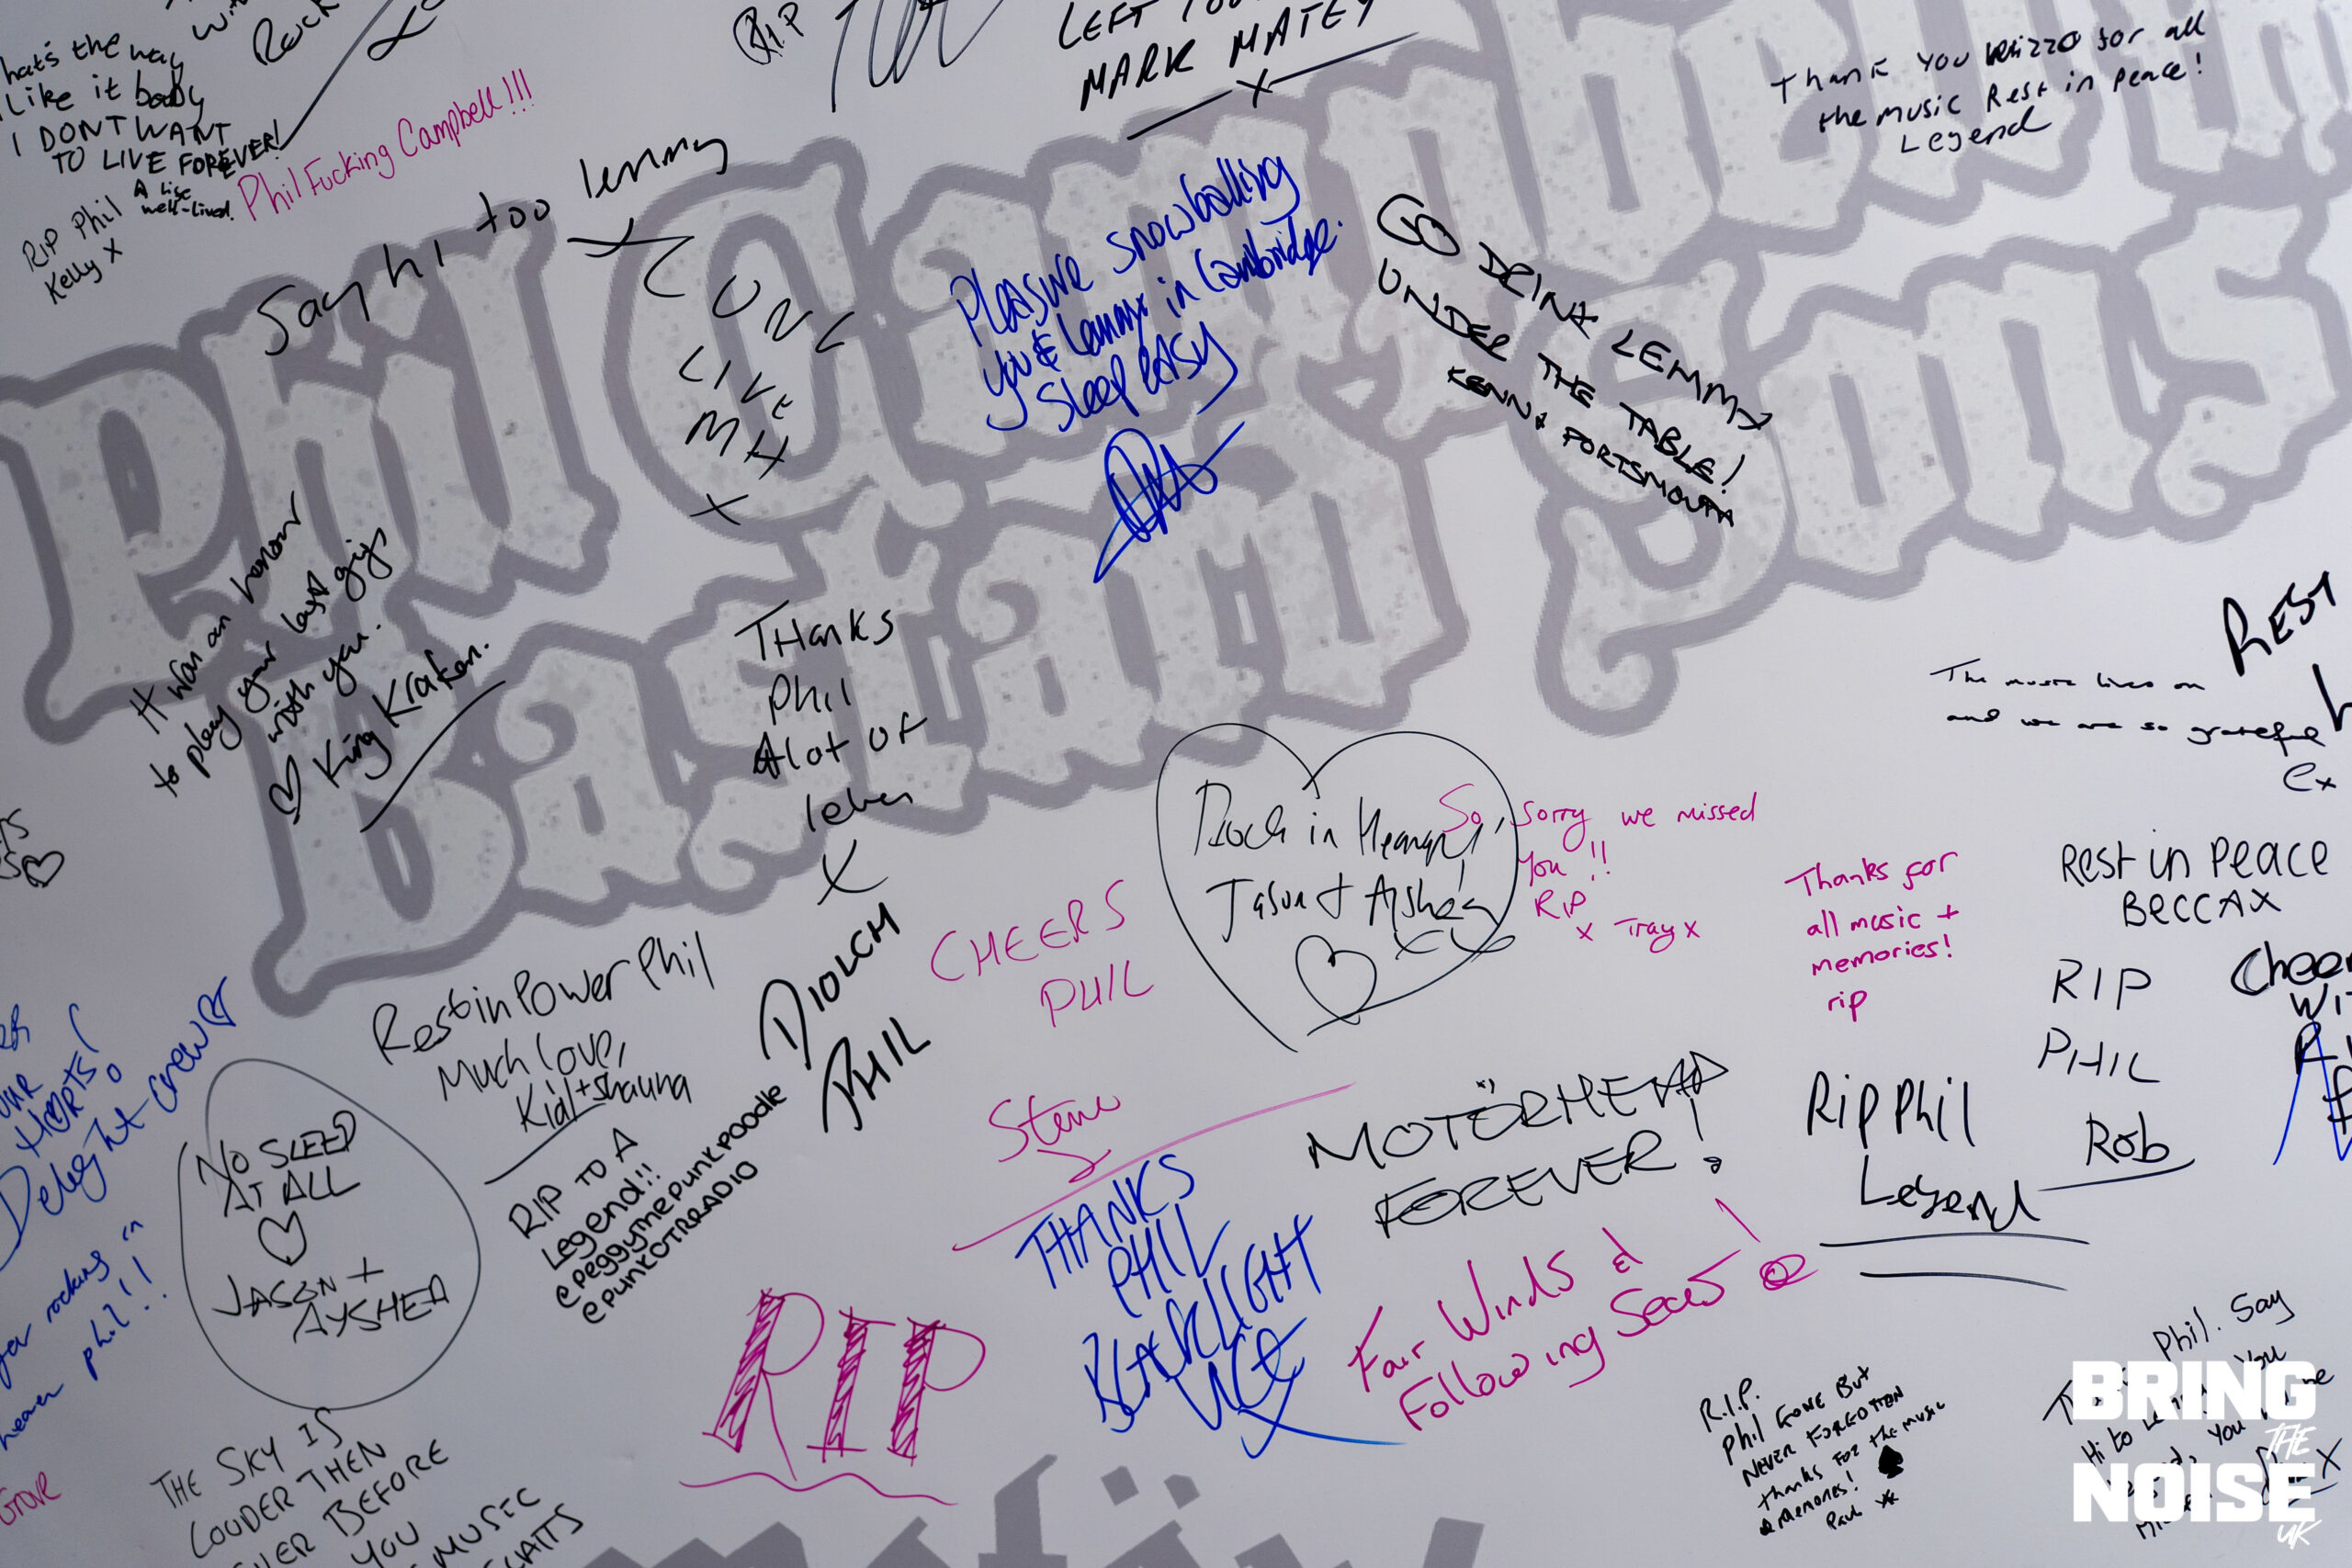 Phil Campbell
Bastard Sons
that's the way
Like it baby
I DONT WANT
TO LIVE FOREVER!
Rock
RIP Phil
Kelly X
A life
well-lived.
Phil Fucking Campbell!!!
RIP
LEFT
MARK MATEY
X
Thank you Wizzo for all
the music Rest in peace!
Legend
Say hi too lemmy
X
Pleasure snowballing
you & Lemmy in Cambridge.
Sleep easy
GO DRINK LEMMY
UNDER THE TABLE!
KENNY PORTSMOUTH
It was an honour
to play your last gigs
with you.
♡ King Kraken.
THanks
Phil
Alot of
X
REST
The music lives on
and we are so grateful
Cx
Rock in Heaven!
Jason & Ayshea
XX
So Sorry we missed
You !!
RIP
x Tray x
Thanks for
all music +
memories!
rip
Rest in Peace
BECCA X
RIP
PHIL
Rob
Rest in Power Phil
Much love,
Kidd + Shauna
DIOLCH
PHIL
CHEERS
PHIL
Steve
MOTÖRHEAD
FOREVER!
Rip Phil
Legend
Delight crew
NO SLEEP
AT ALL
♡
JASON +
AYSHEA
RIP TO A
Legend!!
@peggythepunkpoodle
@punkotrradio
your rocking in
heaven phil!!
RIP
THANKS
PHIL
BLACKLIGHT
VICE
Fair Winds &
Following Seas!
THE SKY IS
LOUDER THEN
EVER BEFORE
YOU
MUSIC
R.I.P.
Phil GONE BUT
NEVER FORGOTTEN
thanks FOR the music
& memories!
Paul
Phil. Say
Hi to
BRING
THE
NOISE
UK